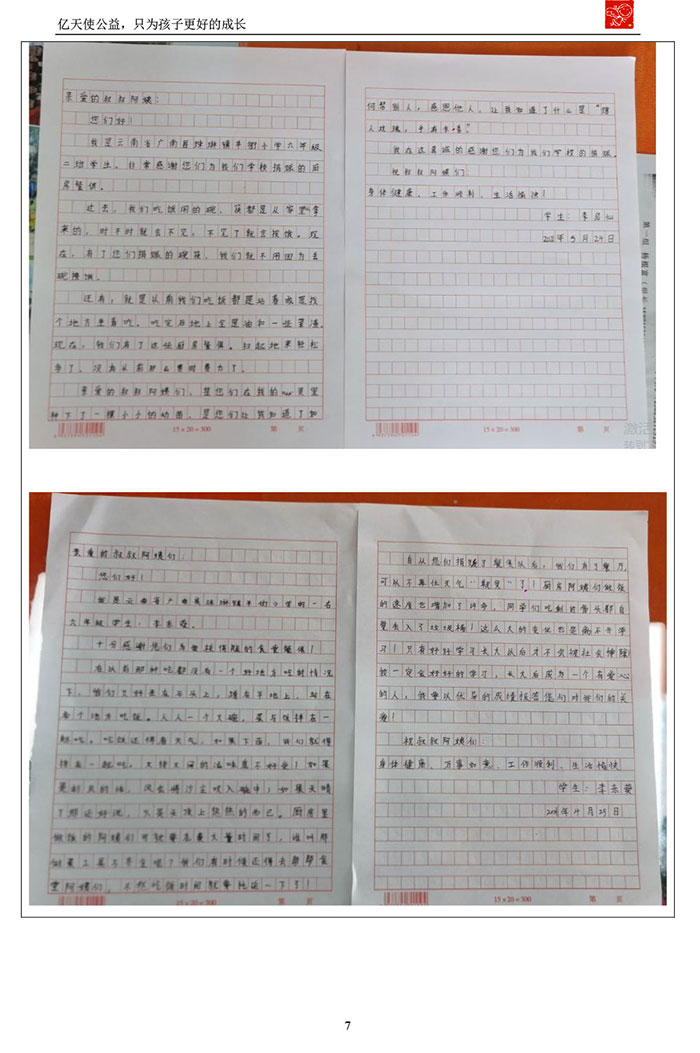 亿天使公益，只为孩子更好的成长
亲爱的叔叔阿姨：
您们好！
我是云南省广南县珠琳镇羊街小学六年级
二班学生，非常感谢您们为我们学校捐赠的厨
房餐俱。
过去，我们吃饭用的碗、筷都是从家里拿
来的，时不时就会不见，不见了就会挨饿。现
在，有了您们捐赠的碗筷，我们就不用因为丢
碗挨饿。
还有，就是从前我们吃饭都是站着或是找
个地方坐着吃，吃完后地上全是油和一些菜渣。
现在，我们有了这些厨房餐俱。扫起地来轻松
多了，没有从前那么费时费力了。
亲爱的叔叔阿姨们，是您们在我的心灵里
种下了一棵小小的幼苗，是您们让我知道了如
何帮助别人，感恩他人。让我知道了什么是“赠
人玫瑰，手有余香”
我在这真诚的感谢您们为我们学校的捐赠。
祝叔叔阿姨们：
身体健康、工作顺利、生活愉快！
学生：李
2021年5月24日
15×20=300
第 页
15×20=300
第 页
第一组
亲爱的叔叔阿姨们：
您们好！
我是云南省广南县珠琳镇羊街小学的一名
六年级学生，李
十分感谢您们为我校捐赠的食堂餐俱！
在以前那种吃都没有一个好地方吃的情况
下，我们只好坐在石头上，蹲在平地上，站在
各个地方吃饭。人人一个大碗，菜与饭拌在一
起吃。吃饭还得看天气，如果下雨，我们就得
挤在一起吃，人挤人间的滋味真不好受！如果
是刮风的话，风会将沙尘吹入碗中；如果天晴
了那还好说，火辣头顶上热热的而已。厨房里
做饭的阿姨们可就要花费大量时间了，谁叫那
时菜工具不齐全呢？我们有时候还得去帮帮食
堂阿姨们，不然吃饭时间就要拖延一下了！
自从您们捐赠了餐具以后，我们有了餐厅，
可以不再住天气“刁难”了！厨房阿姨们做饭
的速度也增加了许多，同学们吃剩的骨头都自
觉丢入了垃圾桶！这么大的变化也是离不开学
习！只有好好学习长大以后才不会被社会排除！
我一定会好好的学习，长大后成为一个有爱心
的人，我要以优异的成绩报答您们对我们的关
爱！
祝叔叔阿姨们：
身体健康、万事如意、工作顺利、生活愉快
学生：李
2021年4月25日
15×20=300
第 页
15×20=300
第 页
7